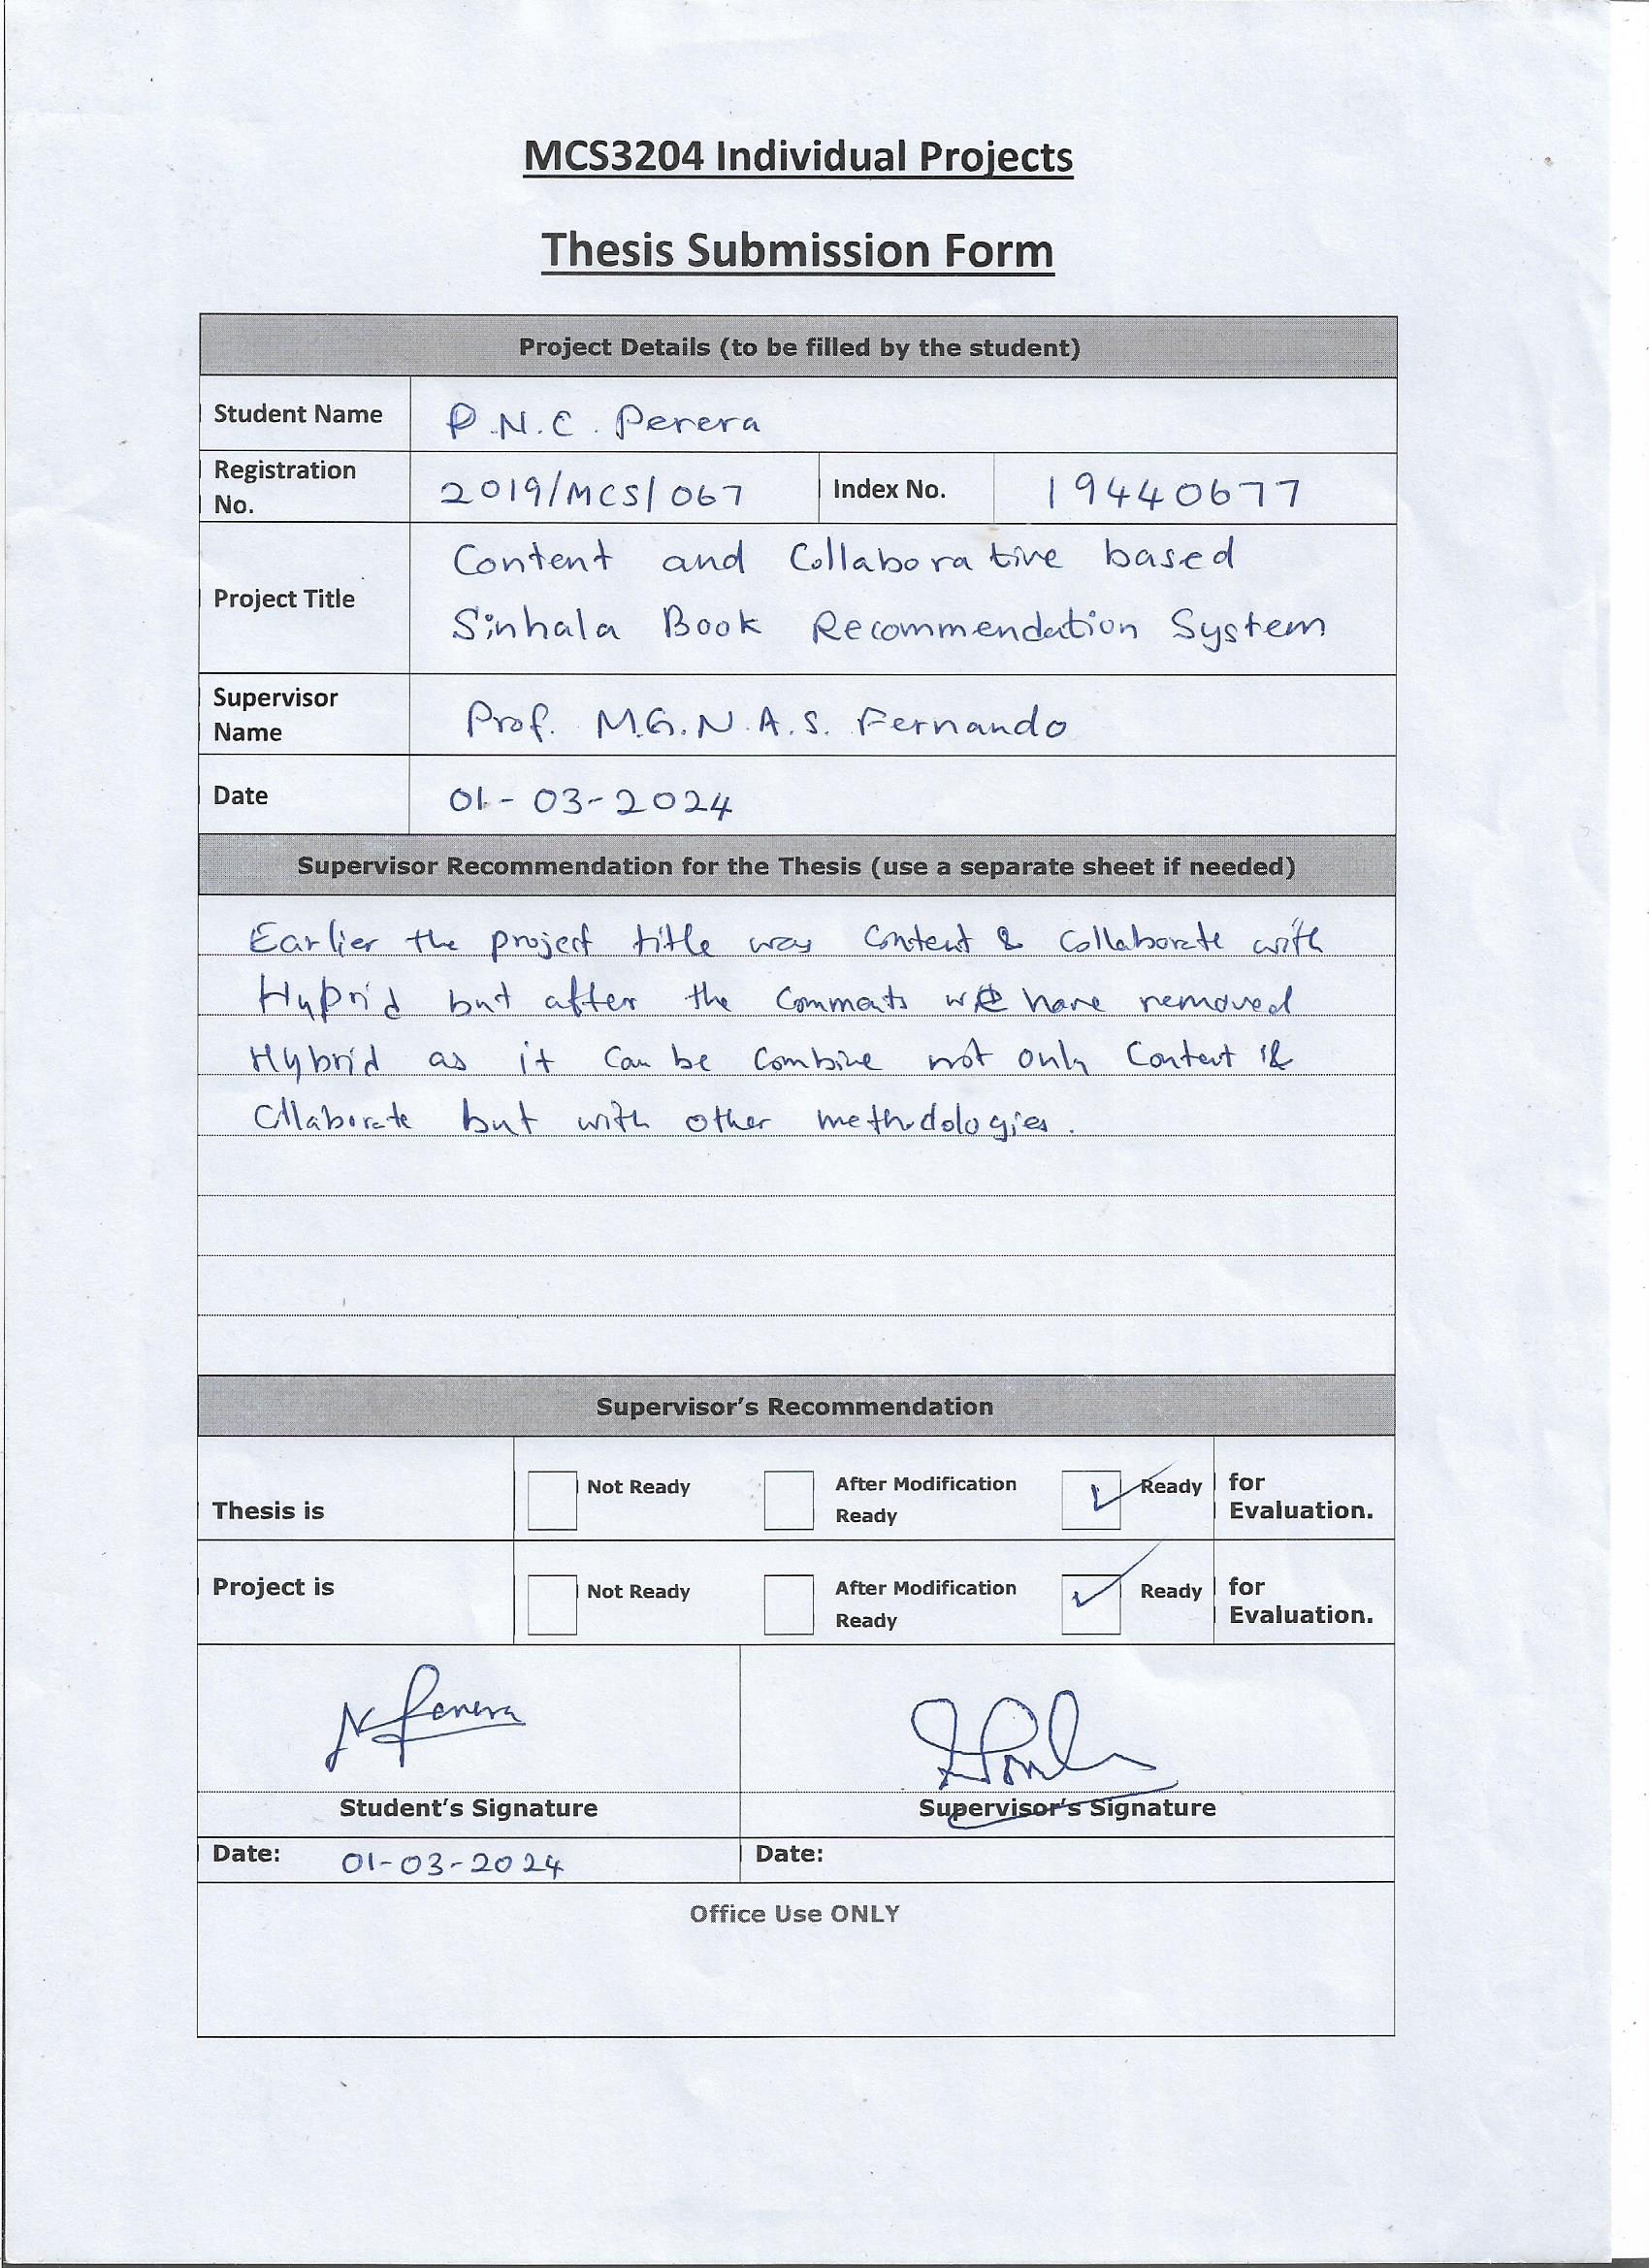 MCS3204 Individual Projects
Thesis Submission Form
Project Details (to be filled by the student)
Student Name P.N.C. Perera
Registration No. 2019/MCS/067 Index No. 19440677
Project Title Content and Collaborative based
Sinhala Book Recommendation System
Supervisor Name Prof. M.G.N.A.S. Fernando
Date 01-03-2024
Supervisor Recommendation for the Thesis (use a separate sheet if needed)
Earlier the project title was Content & Collaborate with
Hybrid but after the Comments we have removed
Hybrid as it can be combine not only Content &
Collaborate but with other methodologies.
Supervisor's Recommendation
Thesis is Not Ready After Modification Ready Ready for Evaluation.
Project is Not Ready After Modification Ready Ready for Evaluation.
N Perera
Student's Signature Supervisor's Signature
Date: 01-03-2024 Date:
Office Use ONLY